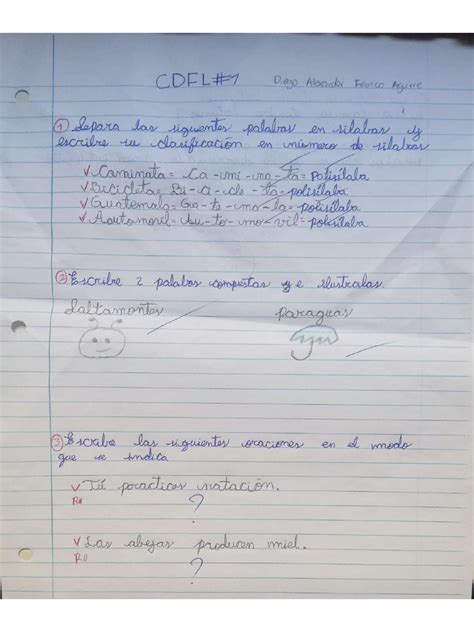 CDFL#1 Diego Alexander Franco Aguirre
① Separa las siguientes palabras en silabas y
escribe su clasificación en número de silabas
✓ Caminata = Ca - mi - na - ta = polisílaba
✓ Bicicleta = Bi - ci - cle - ta = polisílaba
✓ Guatemala = Gua - te - ma - la = polisílaba
✓ Automovil = Au - to - mo - vil = polisílaba
② Escribe 2 palabras compestas y e ilustralas.
Saltamontes paraguas
③ Escribe las siguientes oraciones en el modo
que se indica
✓ Tú practicas natación.
RII ?
✓ Las abejas producen miel.
RII ?